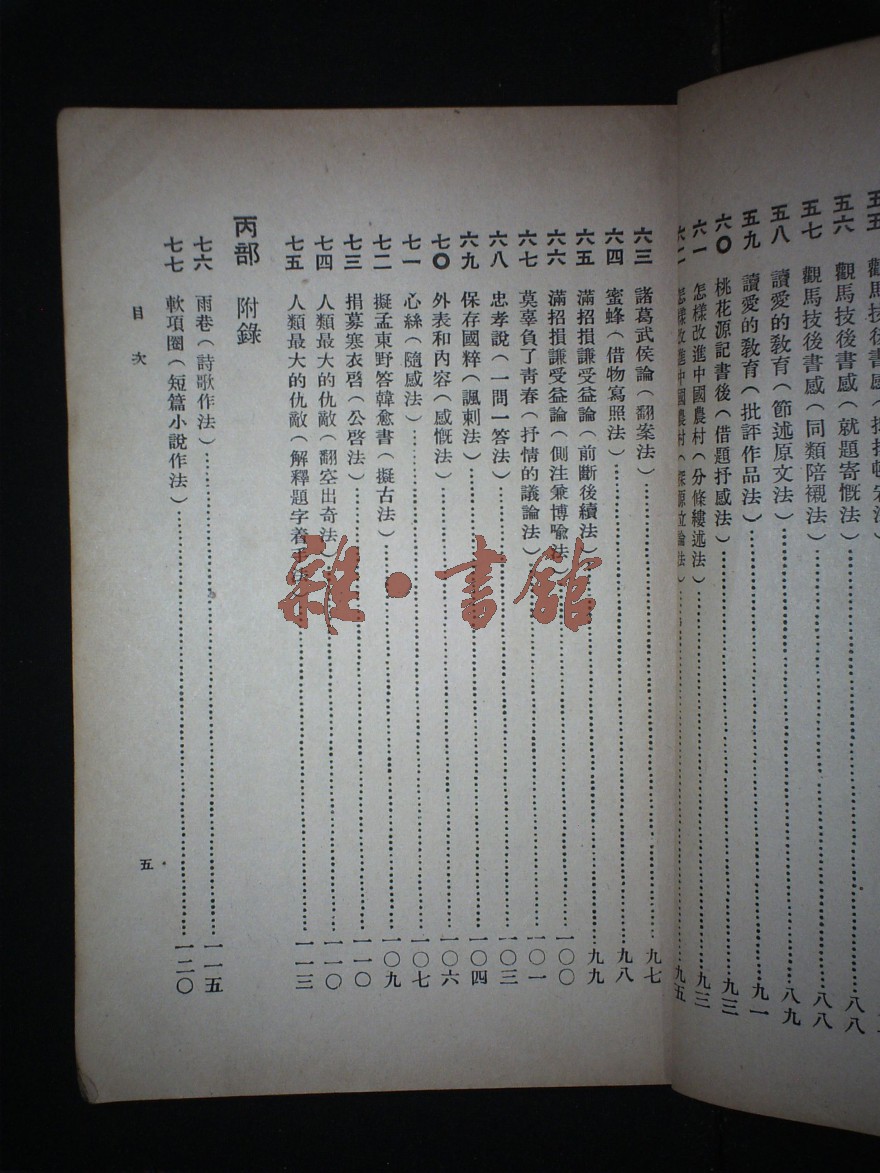 五六 觀馬技後書感（就題寄慨法）……八八
五七 觀馬技後書感（同類陪襯法）……八八
五八 讀愛的教育（節述原文法）……八九
五九 讀愛的教育（批評作品法）……九一
六〇 桃花源記書後（借題抒感法）……九三
六一 怎樣改進中國農村（分條縷述法）……九三
六二 怎樣改進中國農村（探源立論法）……九五
六三 諸葛武侯論（翻案法）……九七
六四 蜜蜂（借物寫照法）……九八
六五 滿招損謙受益論（前斷後續法）……九九
六六 滿招損謙受益論（側注兼博喩法）……一〇〇
六七 莫辜負了靑春（抒情的議論法）……一〇一
六八 忠孝說（一問一答法）……一〇三
六九 保存國粹（諷刺法）……一〇四
七〇 外表和內容（感慨法）……一〇六
七一 心絲（隨感法）……一〇七
七二 擬孟東野答韓愈書（擬古法）……一〇九
七三 捐募寒衣啓（公啓法）……一一〇
七四 人類最大的仇敵（翻空出奇法）……一一〇
七五 人類最大的仇敵（解釋題字着手法）……一一三
丙部 附錄
七六 雨巷（詩歌作法）……一一五
七七 軟項圈（短篇小說作法）……一二〇
目次
五
雜·書館